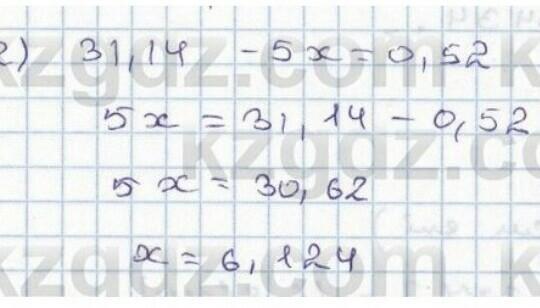 2) 31,14 - 5x = 0,52
5x = 31,14 - 0,52
5x = 30,62
x = 6,124